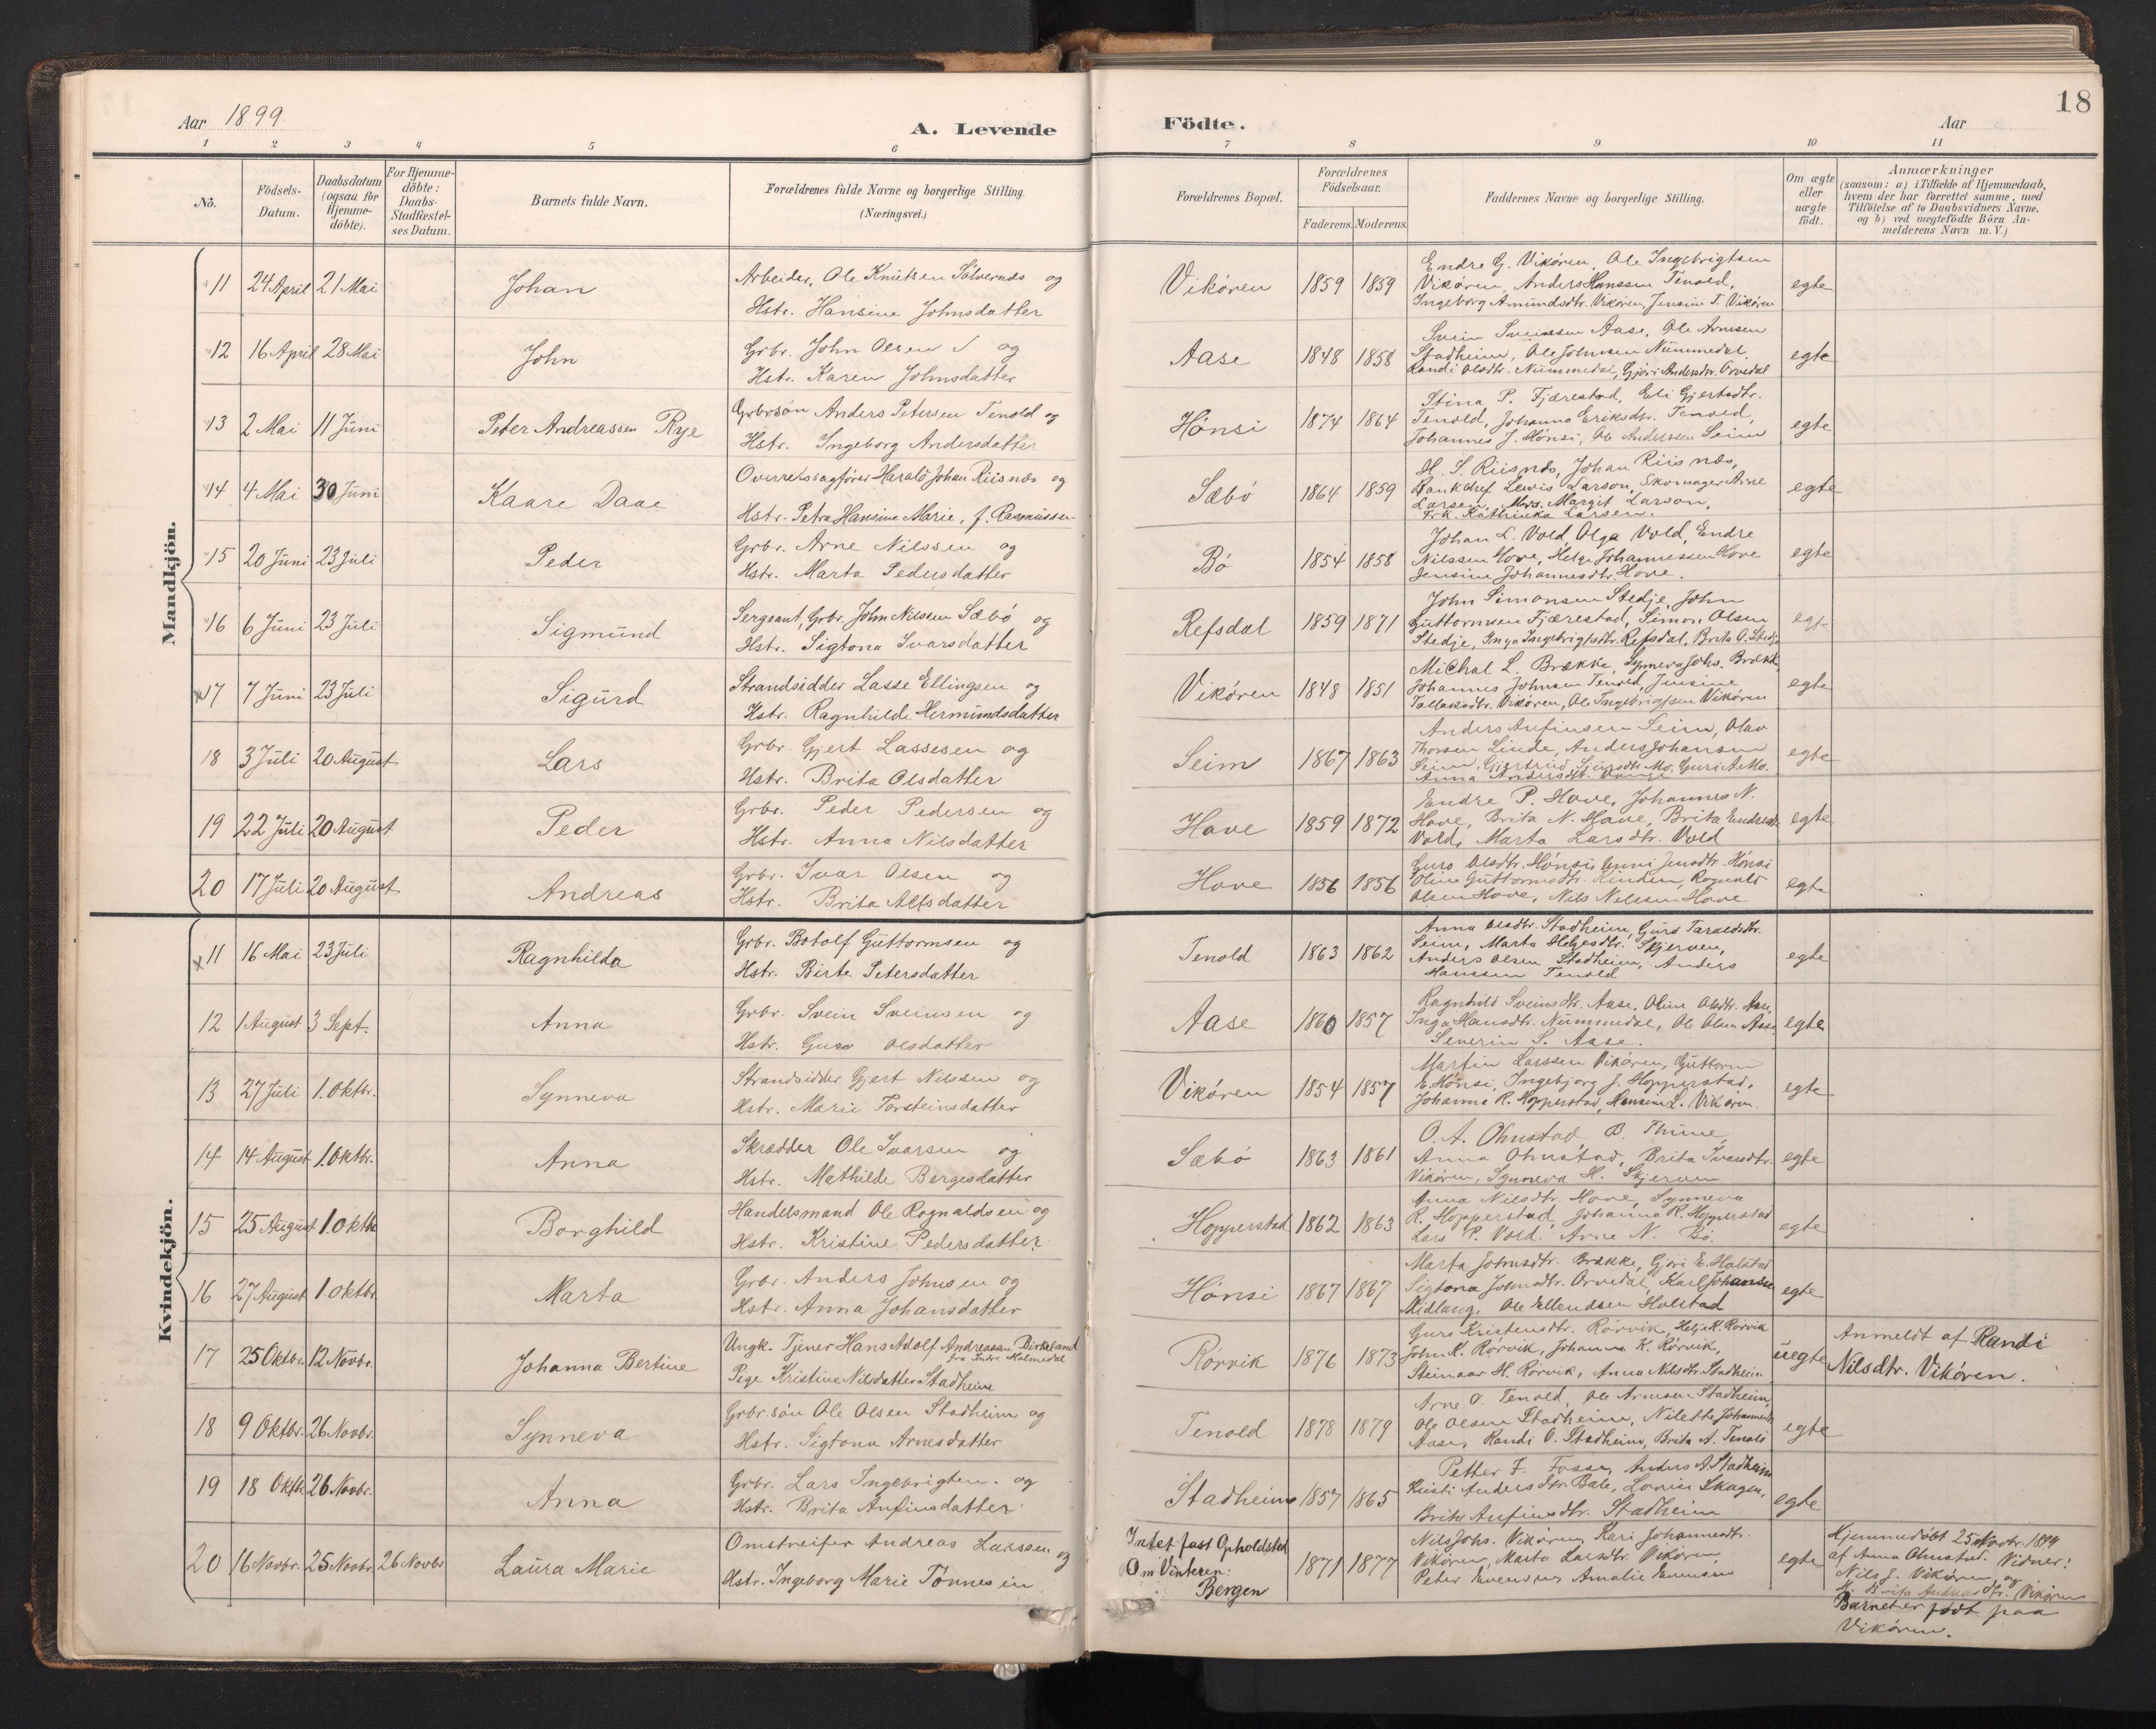 18
Aar 1899. A. Levende Födte. Aar
1 2 3 4 5 6 7 8 9 10 11
No. Födsels-Datum. Daabsdatum (ogsaa for Hjemmedöbte). For Hjemmedöbte: Daabs-Stadfæstelses Datum. Barnets fulde Navn. Forældrenes fulde Navne og borgerlige Stilling. (Næringsvei.) Forældrenes Bopæl. Forældrenes Födselsaar. Faderens. Moderens. Faddernes Navne og borgerlige Stilling. Om ægte eller uægte födt. Anmærkninger (saasom: a) i Tilfælde af Hjemmedaab, hvem der har forrettet samme, med Tilföielse af to Daabsvidners Navne, og b) ved uægtefödte Börn Anmelderens Navn m. V.)
Mandkjön.
11 24 April 21 Mai Johan Arbeider, Ole Knutsen Sälvernes og
Hstr. Hansine Johnsdatter
Vikøren 1859 1859 Endre G. Vikøren, Ole Ingebrigtsen
Vikøren, Anders Hanssen Tenold,
Ingeborg Amundsdtr. Vikøren, Jensine T. Vikøren
egte
12 16 April 28 Mai John Grbr. John Olsen og
Hstr. Karen Johnsdatter
Aase 1848 1858 Svein Sveinssen Aase, Ole Arnesen
Stadheim, Ole Johnsen Nummedal,
Randi Olsdtr. Nummedal, Gjöri Andersdtr. Orvedal
egte
13 2 Mai 11 Juni Peter Andreassen Rye Grbrsön Anders Petersen Tenold og
Hstr. Ingeborg Andersdatter
Hønsi 1874 1864 Stina P. Fjærestad, Eli Gjertsdtr.
Tenold, Johanna Eriksdtr. Tenold,
Johannes J. Hønsi, Ole Anderssen Seim
egte
14 4 Mai 30 Juni Kaare Daae Overretssagfører Harald Johan Riisnæs og
Hstr. Petra Hansine Marie, f. Rasmussen
Sæbø 1864 1859 H. S. Riisnæs, Johan Riisnæs,
Bankchef Lewis Larson, Skomager Arne
Larsen, Mrs. Margit Larson,
Frk. Kathinka Larsen.
egte
15 20 Juni 23 Juli Peder Grbr. Arne Nilssen og
Hstr. Marta Pedersdatter
Bø 1854 1858 Johan L. Vold, Olga Vold, Endre
Nilssen Hove, Helge Johannessen Hove
Jensine Johannesdtr. Hove.
egte
16 6 Juni 23 Juli Sigmund Sergeant, Grbr. John Nilssen Sæbö og
Hstr. Sigtona Ivarsdatter
Refsdal 1859 1871 John Simonsen Stedje, John
Guttormsen Fjærestad, Simon Olsen
Stedje, Inga Ingebrigtsdtr. Refsdal, Brita O. Stedje
egte
17 7 Juni 23 Juli Sigurd Strandsidder Lasse Ellingsen og
Hstr. Ragnhilde Hermundsdatter
Vikøren 1848 1851 Michal L. Brække, Synneva Johs. Brække
Johannes Johnsen Tenold, Jensine
Tollaksdtr. Vikøren, Ole Ingebrigtsen Vikøren
egte
18 3 Juli 20 August Lars Grbr. Gjert Lassesen og
Hstr. Brita Olsdatter
Seim 1867 1863 Anders Anfinsen Seim, Olav
Thorsen Linde, Anders Johansen
Seim, Gjertrud Sjursdtr. Mo, Guri A. Mo.
Anna Andersdtr.
egte
19 22 Juli 20 August Peder Grbr. Peder Pedersen og
Hstr. Anna Nilsdatter
Hove 1859 1872 Endre P. Hove, Johannes N.
Hove, Brita N. Hove, Brita Endresdtr.
Vold, Marta Larsdtr. Vold
egte
20 17 Juli 20 August Andreas Grbr. Ivar Olsen og
Hstr. Brita Alfsdatter
Hove 1856 1856 Guro Olsdtr. Hønsi, Anni Jensdtr. Hønsi
Oline Guttormsdtr. Hinden, Rognald
Olsen Hove, Nils Nilssen Hove
egte
Kvindekjön.
11 16 Mai 23 Juli Ragnhilda Grbr. Botolf Guttormsen og
Hstr. Birte Petersdatter
Tenold 1863 1862 Anna Olsdtr. Stadheim, Guro Taraldsdtr.
Seim, Marta Helgesdtr. Skjerven,
Anders Olsen Stadheim, Anders
Hanssen Tenold
egte
12 1 August 3 Sept. Anna Grbr. Svein Sveinsen og
Hstr. Guro Olsdatter
Aase 1860 1857 Ragnhild Sveinsdtr. Aase, Oline Olsdtr. Aase,
Inga Hansdtr. Nummedal, Ole Olsen Aase
Severin S. Aase.
egte
13 27 Juli 1. Oktbr. Synneva Strandsidder Gjert Nilssen og
Hstr. Marie Torsteinsdatter
Vikøren 1854 1857 Martin Larssen Vikøren, Guttorm
E. Hønsi, Ingebjorg J. Hopperstad,
Johanna R. Hopperstad, Hansine L. Vikøren.
egte
14 14 August 1. Oktbr. Anna Skrædder Ole Ivarsen og
Hstr. Mathilde Bergesdatter
Sæbø 1863 1861 O. A. Ohnstad, B. Thune,
Anna Ohnstad, Brita Ivarsdtr.
Vikøren, Synneva H. Skjerven
egte
15 25 August 1 Oktbr Borghild Handelsmand Ole Rognaldsen og
Hstr. Kristine Pedersdatter
Hopperstad 1862 1863 Anna Nilsdtr. Hove, Synneva
R. Hopperstad, Johanna R. Hopperstad
Lars P. Vold. Arne N. Bø.
egte
16 27 August 1 Oktbr. Marta Grbr. Anders Johnsen og
Hstr. Anna Johansdatter
Hønsi 1867 1867 Marta Johnsdtr. Brække, Gjöri E. Halstad
Sigtona Johnsdtr. Orvedal, Karl Johansen
Midlang, Ole Ellendsen Holstad
egte
17 25 Oktbr. 12 Novbr. Johanna Bertine Ungk. Tjener Hans Adolf Andreassen Birkeland
fra Indre Holmedal
Pige Kristine Nilsdatter Stadheim
Rørvik 1876 1873 Guro Kristensdtr. Rørvik, Helje K. Rørvik
John K. Rørvik, Johanna K. Rørvik,
Steinaar H. Rørvik, Anna Nilsdtr. Stadheim
uegte Anmeldt af Randi
Nilsdtr. Vikøren.
18 9 Oktbr. 26 Novbr. Synneva Grbr.sön Ole Olsen Stadheim og
Hstr. Sigtona Arnesdatter
Tenold 1878 1879 Arne O. Tenold, Ole Arnesen Stadheim,
Ole Olsen Stadheim, Nilette Johannesdtr.
Aase, Randi O. Stadheim, Brita A. Tenold
egte
19 18 Oktbr. 26 Novbr. Anna Grbr. Lars Ingebrigten. og
Hstr. Brita Anfinsdatter
Stadheim 1857 1865 Petter F. Fosse, Anders A. Stadheim
Kristi Andersdtr. Bale, Lovise Skagen,
Brithe Anfinsdtr. Stadheim
egte
20 16 Novbr. 25 Novbr. 26 Novbr Laura Marie Omstreifer Andreas Larssen og
Hstr. Ingeborg Marie Tønnesen
Intet fast Opholdsted
Om Vinteren:
Bergen
1871 1877 Nils Johs. Vikøren, Kari Johannesdtr.
Vikøren, Marta Larsdtr. Vikøren,
Peter Evensen, Amalie Evensen
egte Hjemmedøbt 25 Novbr. 1899
af Anna Ohnstad. Vidner:
Nils J. Vikøren, og
Brita Andersdtr. Vikøren
Barnet er født paa
Vikøren.